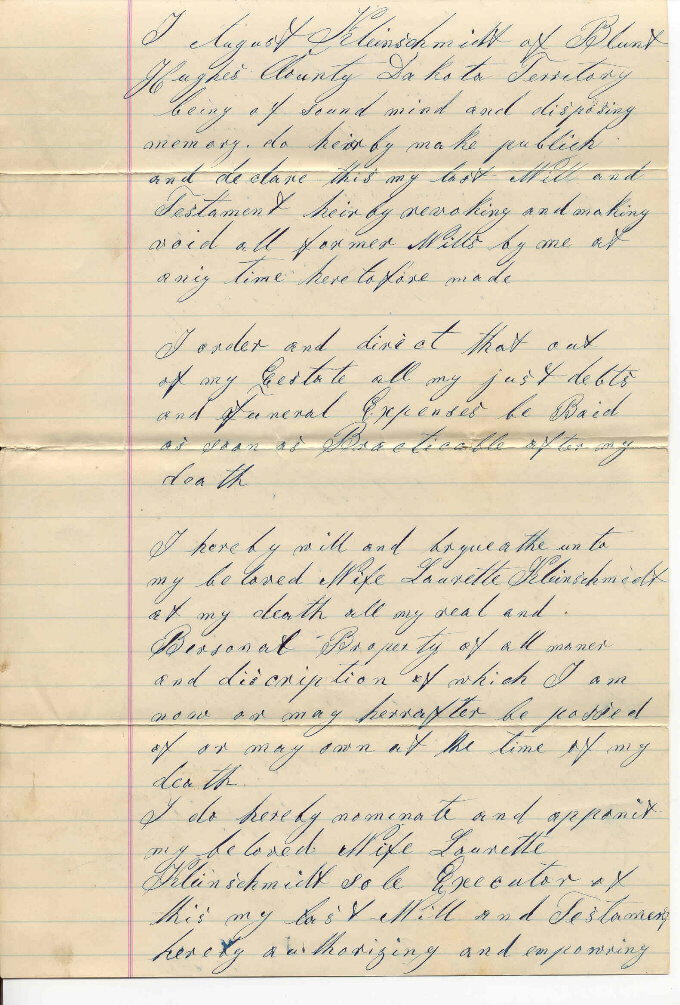 I August Kleinschmidt of Blunt
Hughes County Dakota Territory
being of sound mind and disposing
memory. do heirby make publich
and declare this my last Will and
Testament heirby revoking and making
void all former Wills by me at
any time heretofore made
I order and direct that out
of my Eestate all my just debts
and funeral Expenses be Baid
as soon as Bracticable after my
death
I hereby will and bequeathe unto
my beloved Wife Laurette Kleinschmidt
at my death all my real and
Bersonal Broperty of all maner
and discription of which I am
now or may herrafter be possed
of or may own at the time of my
death
I do hereby nominate and apponit
my beloved Wife Laurette
Kleinschmidt sole Executor of
this my last Will and Testament
hereby authorizing and empowring